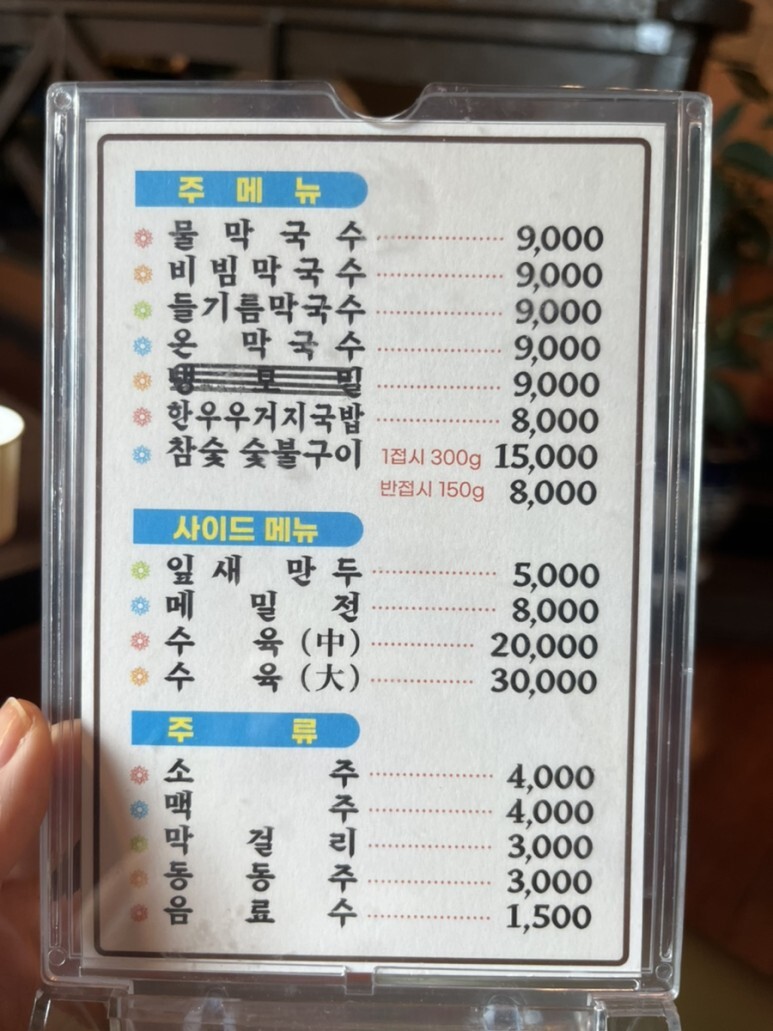 주 메 뉴
물 막 국 수 9,000
비 빔 막 국 수 9,000
들기름막국수 9,000
온 막 국 수 9,000
냉 모 밀 9,000
한우우거지국밥 8,000
참숯 숯불구이 1접시 300g 15,000
반접시 150g 8,000
사이드 메뉴
잎 새 만 두 5,000
메 밀 전 8,000
수 육 (中) 20,000
수 육 (大) 30,000
주 류
소 주 4,000
맥 주 4,000
막 걸 리 3,000
동 동 주 3,000
음 료 수 1,500